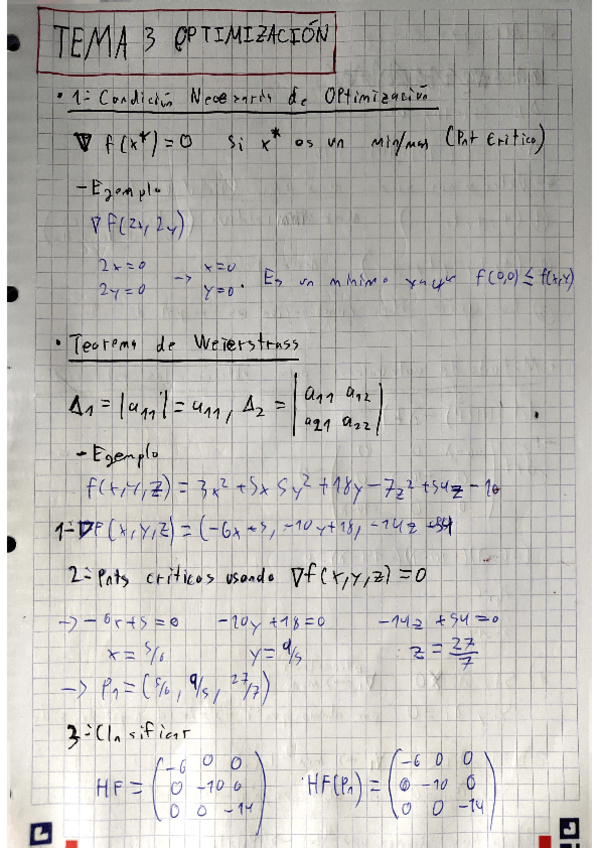 TEMA 3 OPTIMIZACIÓN
• 1- Condición Necesaria de Optimización
∇ f(x*) = 0 Si x* es un min/max (Pnt Critico)
- Ejemplo
∇ f(2x, 2y)
2x=0 → x=0
2y=0 y=0. Es un mínimo ya que f(0,0) ≤ f(x,y)
• Teorema de Weierstrass
Δ1 = |a11| = a11, Δ2 = |a11 a12
a21 a22|
- Ejemplo
f(x,y,z) = 3x² + 5x 5y² + 18y - 7z² + 54z - 10
1- ∇F(x,y,z) = (-6x+5, -10y+18, -14z+54
2- Pnts críticos usando ∇f(x,y,z) = 0
→ -6x+5=0 -10y+18=0 -14z+54=0
x=5/6 y=9/5 z=27/7
→ P1 = (5/6, 9/5, 27/7)
3- Clasificar
HF = (-6 0 0 HF(P1) = (-6 0 0
0 -10 0 0 -10 0
0 0 -14) 0 0 -14)